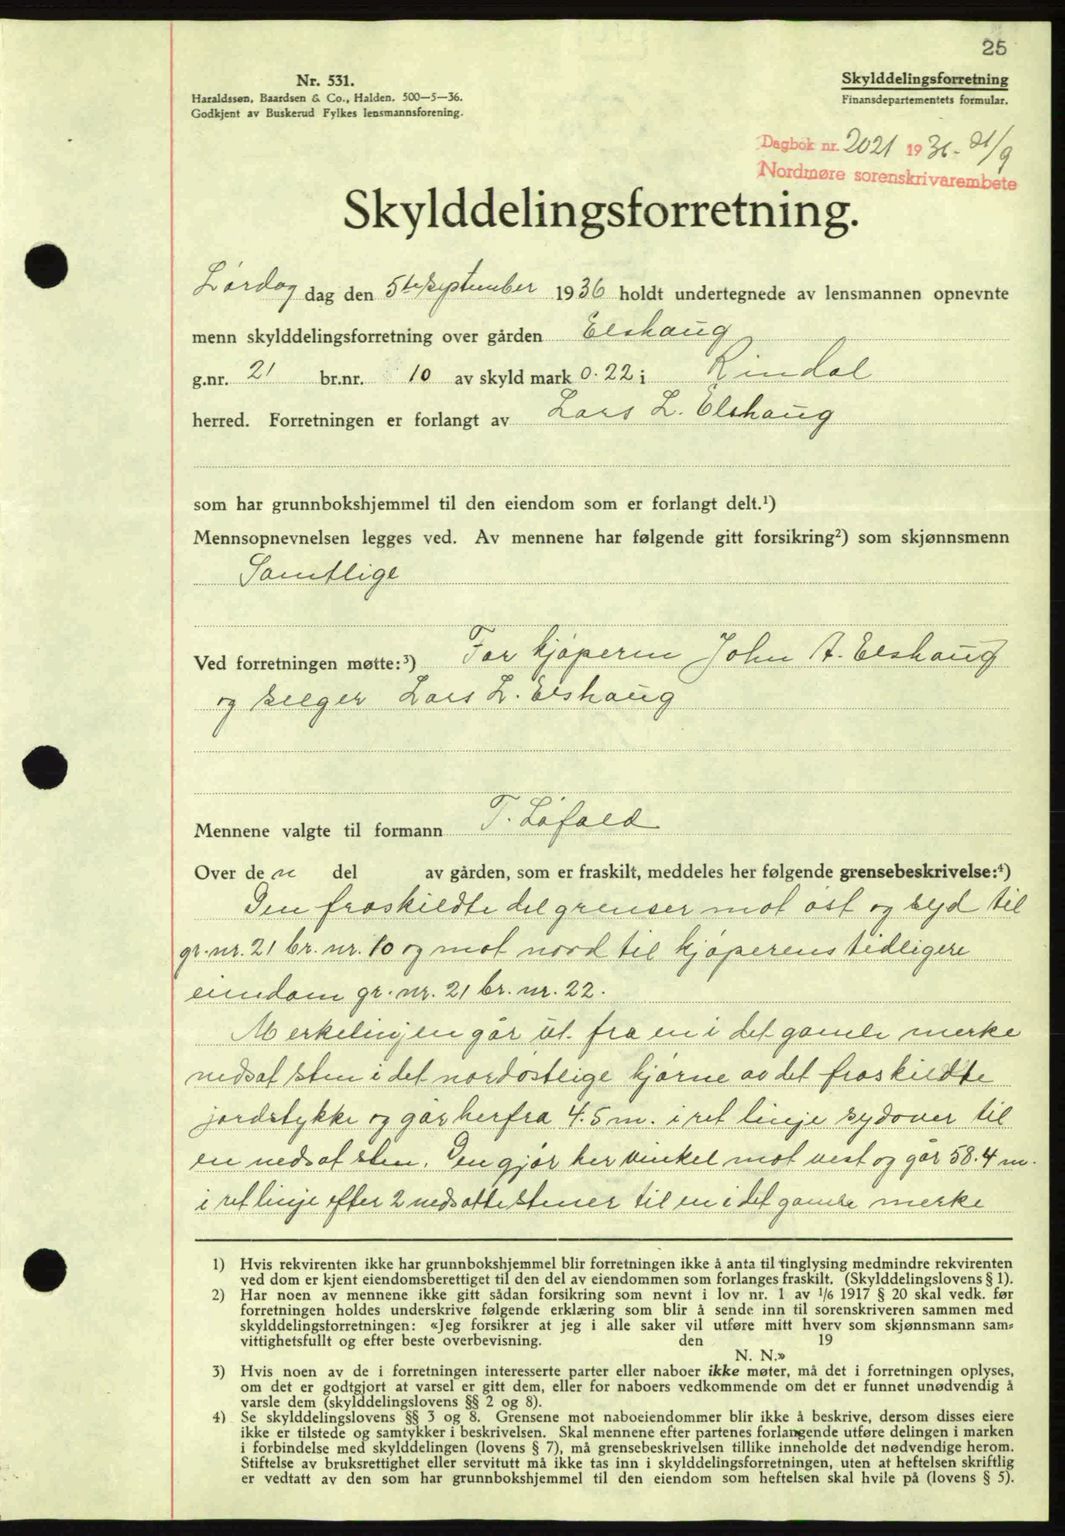 25
Nr. 531.
Haraldssen, Baardsen & Co., Halden. 500—5—36.
Godkjent av Buskerud Fylkes lensmannsforening.
Skylddelingsforretning
Finansdepartementets formular.
Dagbok nr. 2021 1936 - 21/9
Nordmøre sorenskrivarembete
Skylddelingsforretning.
Lørdag dag den 5te september 1936 holdt undertegnede av lensmannen opnevnte
menn skylddelingsforretning over gården Elshaug
g.nr. 21 br.nr. 10 av skyld mark 0.22 i Rindal
herred. Forretningen er forlangt av Lars L. Elshaug
som har grunnbokshjemmel til den eiendom som er forlangt delt.¹)
Mennsopnevnelsen legges ved. Av mennene har følgende gitt forsikring²) som skjønnsmenn
Samtlige
Ved forretningen møtte:³) For kjøperen John A. Elshaug
og selger Lars L. Elshaug
Mennene valgte til formann T. Løfald
Over de n del av gården, som er fraskilt, meddeles her følgende grensebeskrivelse:⁴)
Den fraskildte del grenser mot øst og syd til
gr.nr. 21 br.nr. 10 og mot nord til kjøperens tidligere
eiendom gr.nr. 21 br.nr. 22.
Merkelinjen går ut fra en i det gamle merke
nedsat sten i det nordøstlige hjørne av det fraskildte
jordstykke og går herfra 4.5 m. i ret linje sydover til
en nedsat sten. Den gjør her vinkel mot vest og går 58.4 m.
i ret linje efter 2 nedsatte stener til en i det gamle merke
1) Hvis rekvirenten ikke har grunnbokshjemmel blir forretningen ikke å anta til tinglysing medmindre rekvirenten
ved dom er kjent eiendomsberettiget til den del av eiendommen som forlanges fraskilt. (Skylddelingslovens § 1).
2) Har noen av mennene ikke gitt sådan forsikring som nevnt i lov nr. 1 av 1/6 1917 § 20 skal vedk. før
forretningen holdes underskrive følgende erklæring som blir å sende inn til sorenskriveren sammen med
skylddelingsforretningen: «Jeg forsikrer at jeg i alle saker vil utføre mitt hverv som skjønnsmann sam-
vittighetsfullt og efter beste overbevisning. den 19
N. N.»
3) Hvis noen av de i forretningen interesserte parter eller naboer ikke møter, må det i forretningen oplyses,
om det er godtgjort at varsel er gitt dem, eller for naboers vedkommende om det er funnet unødvendig å
varsle dem (skylddelingslovens §§ 2 og 8).
4) Se skylddelingslovens §§ 3 og 8. Grensene mot naboeiendommer blir ikke å beskrive, dersom disses eiere
ikke er tilstede og samtykker i beskrivelsen. Skal mennene efter partenes forlangende utføre delingen i marken
i forbindelse med skylddelingen (lovens § 7), må grensebeskrivelsen tillike inneholde det nødvendige herom.
Stiftelse av bruksrettighet eller servitutt må ikke tas inn i skylddelingsforretningen, uten at heftelsen skriftlig
er vedtatt av den som har grunnbokshjemmel til den eiendom som heftelsen skal hvile på (lovens § 5).